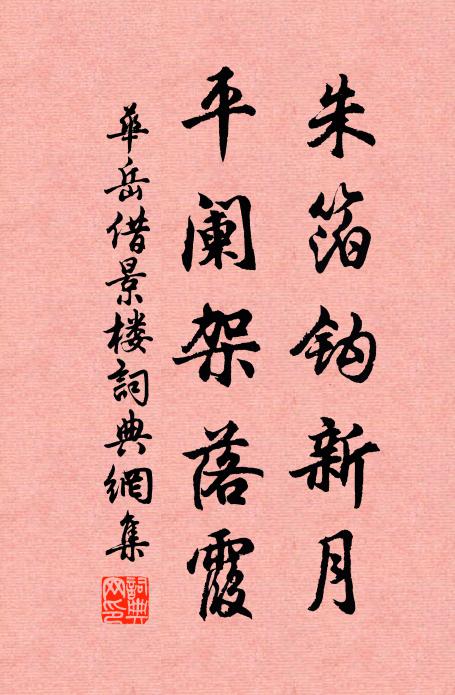 朱箔钩新月
平阑架落霞
華岳借景楼詞典網集
詞典網印